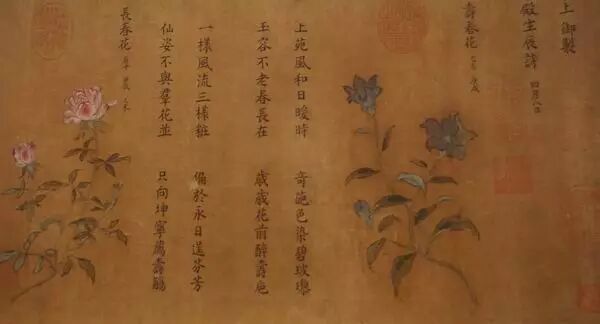 上 御製
殿生辰詩 四月八日
壽春花
上苑風和日暖時 奇葩色染碧玻瓈
玉容不老春長在 歲歲花前醉壽巵
一樣風流三樣粧 偏於永日逞芬芳
仙姿不與羣花並 只向坤寧薦壽觴
長春花